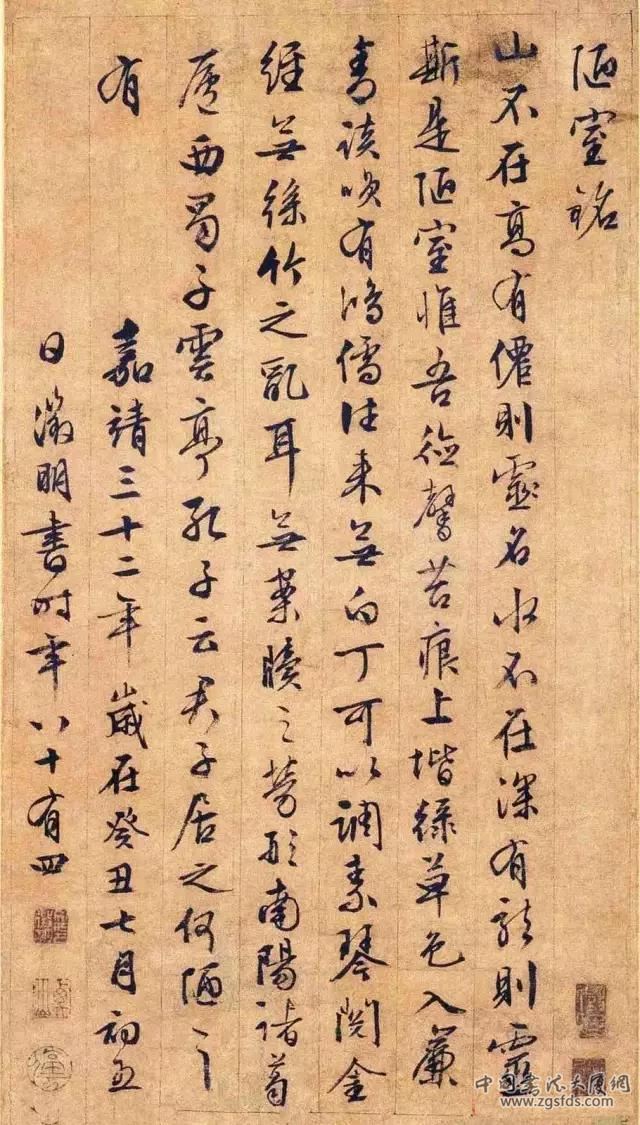 陋室銘
山不在高有僊則靈名水不在深有龍則靈
斯是陋室惟吾德馨苔痕上堦綠草色入簾
青談咲有鴻儒往来無白丁可以調素琴閱金
經無絲竹之亂耳無案牘之勞形南陽諸葛
廬西蜀子雲亭孔子云君子居之何陋之
有
嘉靖三十二年歲在癸丑七月初五
日徵明書時年八十有四
www.zgsfds.com